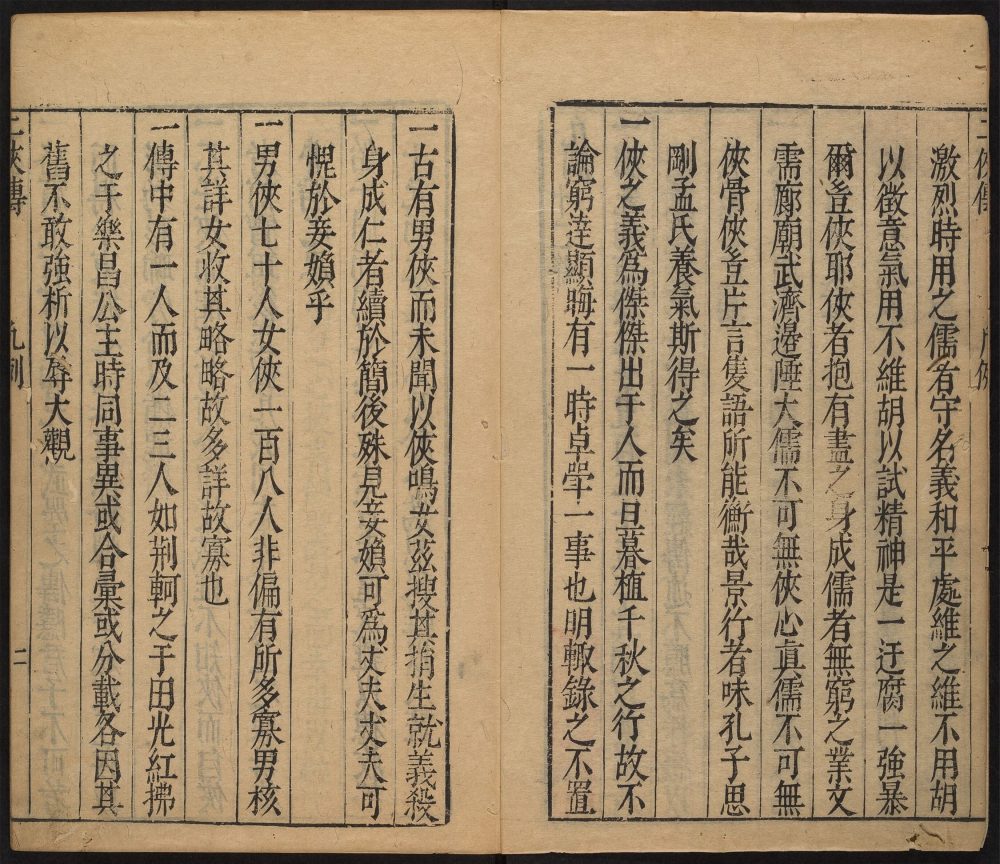 激烈時用之儒者守名義和平處維之維不用胡
以徵意氣用不維胡以試精神是一迂腐一強暴
爾豈俠耶俠者抱有盡之身成儒者無窮之業文
需廊廟武濟邊陲大儒不可無俠心真儒不可無
俠骨俠豈片言隻語所能衡哉景行者味孔子思
剛孟氏養氣斯得之矣
一俠之義為傑傑出于人而旦暮植千秋之行故不
論窮達顯晦有一時卓犖一事也明輙錄之不置
一古有男俠而未聞以俠鳴女茲搜其捐生就義殺
身成仁者續於簡後殊見妾媍可為丈夫丈夫可
愧於妾媍乎
一男俠七十人女俠一百八人非偏有所多寡男核
其詳女收其略略故多詳故寡也
一傳中有一人而及二三人如荆軻之于田光紅拂
之于樂昌公主時同事異或合彙或分載各因其
舊不敢強析以辱大觀
二俠傳 凡例 二